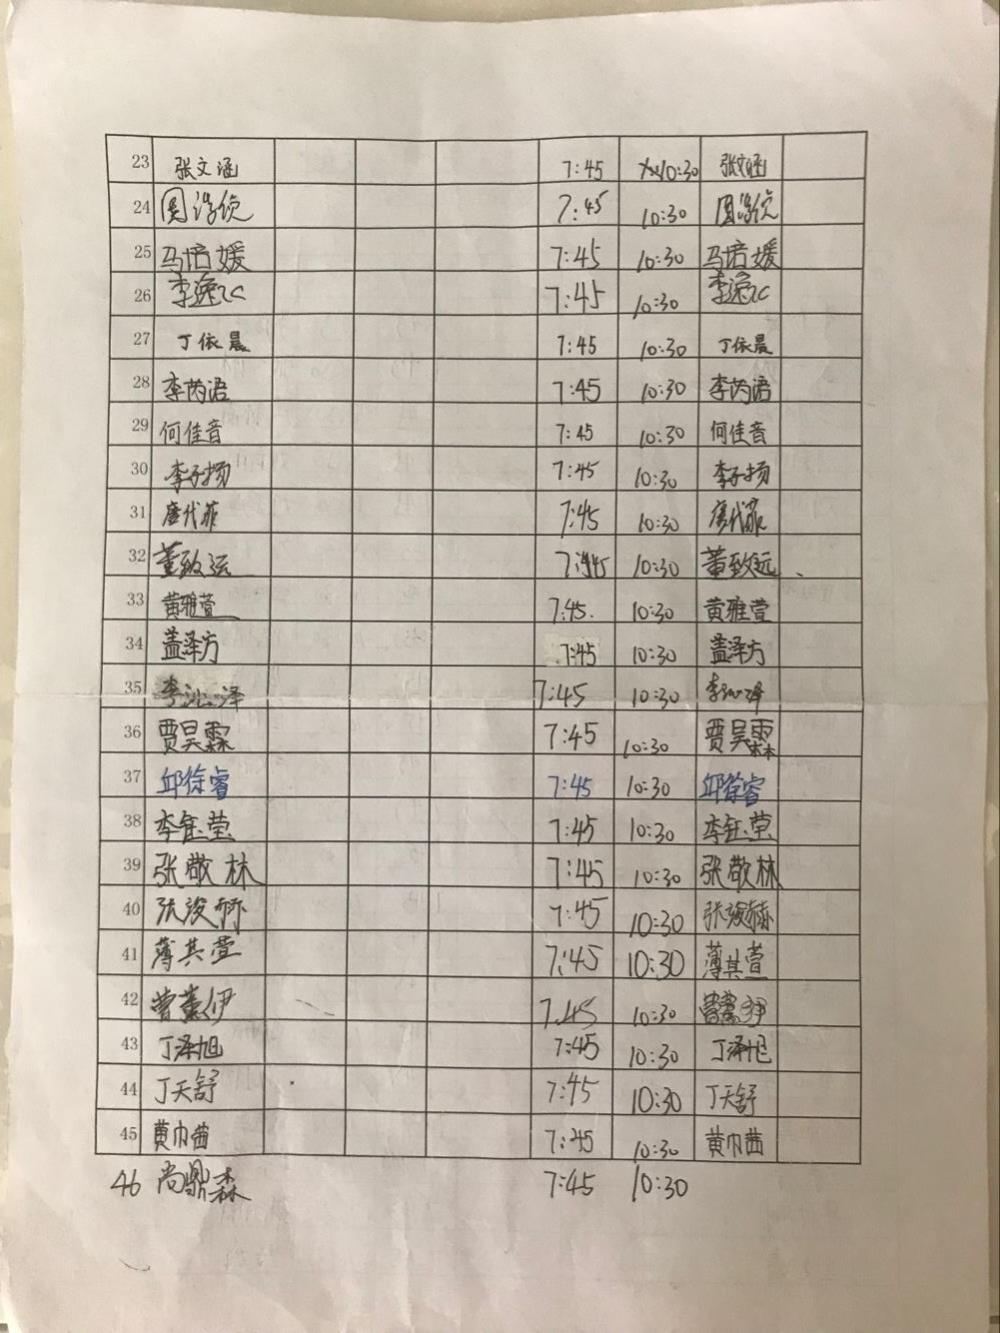 23 张文涵 7:45 10:30 张文涵
24 7:45 10:30
25 马培媛 7:45 10:30 马培媛
26 7:45 10:30
27 丁依晨 7:45 10:30 丁依晨
28 李芮语 7:45 10:30 李芮语
29 何佳音 7:45 10:30 何佳音
30 李子扬 7:45 10:30 李子扬
31 唐代菲 7:45 10:30 唐代菲
32 董致远 7:45 10:30 董致远
33 黄雅萱 7:45. 10:30 黄雅萱
34 盖泽方 7:45 10:30 盖泽方
35 李沁泽 7:45 10:30 李沁泽
36 贾昊霖 7:45 10:30 贾昊霖
37 邱徐睿 7:45 10:30 邱徐睿
38 李钰莹 7:45 10:30 李钰莹
39 张敬林 7:45 10:30 张敬林
40 张浚赫 7:45 10:30 张浚赫
41 薄其萱 7:45 10:30 薄其萱
42 7.45 10:30
43 丁泽旭 7:45 10:30 丁泽旭
44 丁天舒 7:45 10:30 丁天舒
45 黄巾茜 7:45 10:30 黄巾茜
46 尚鼎森 7:45 10:30